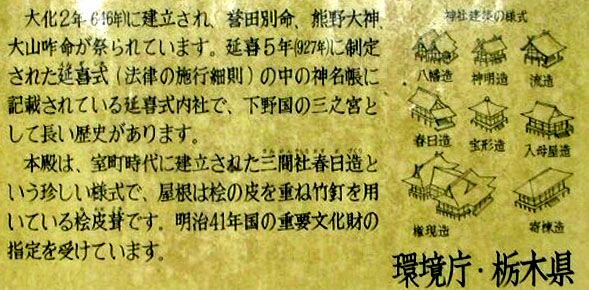 大化2年(646年)に建立され、誉田別命、熊野大神、
大山咋命が祭られています。延喜5年(927年)に制定
された延喜式(法律の施行細則)の中の神名帳に
記載されている延喜式内社で、下野国の三之宮と
して長い歴史があります。
本殿は、室町時代に建立された三間社春日造と
いう珍しい様式で、屋根は桧の皮を重ね竹釘を用
いている桧皮葺です。明治41年国の重要文化財の
指定を受けています。
神社建築の様式
八幡造
神明造
流造
春日造
宝形造
入母屋造
権現造
寄棟造
環境庁・栃木県